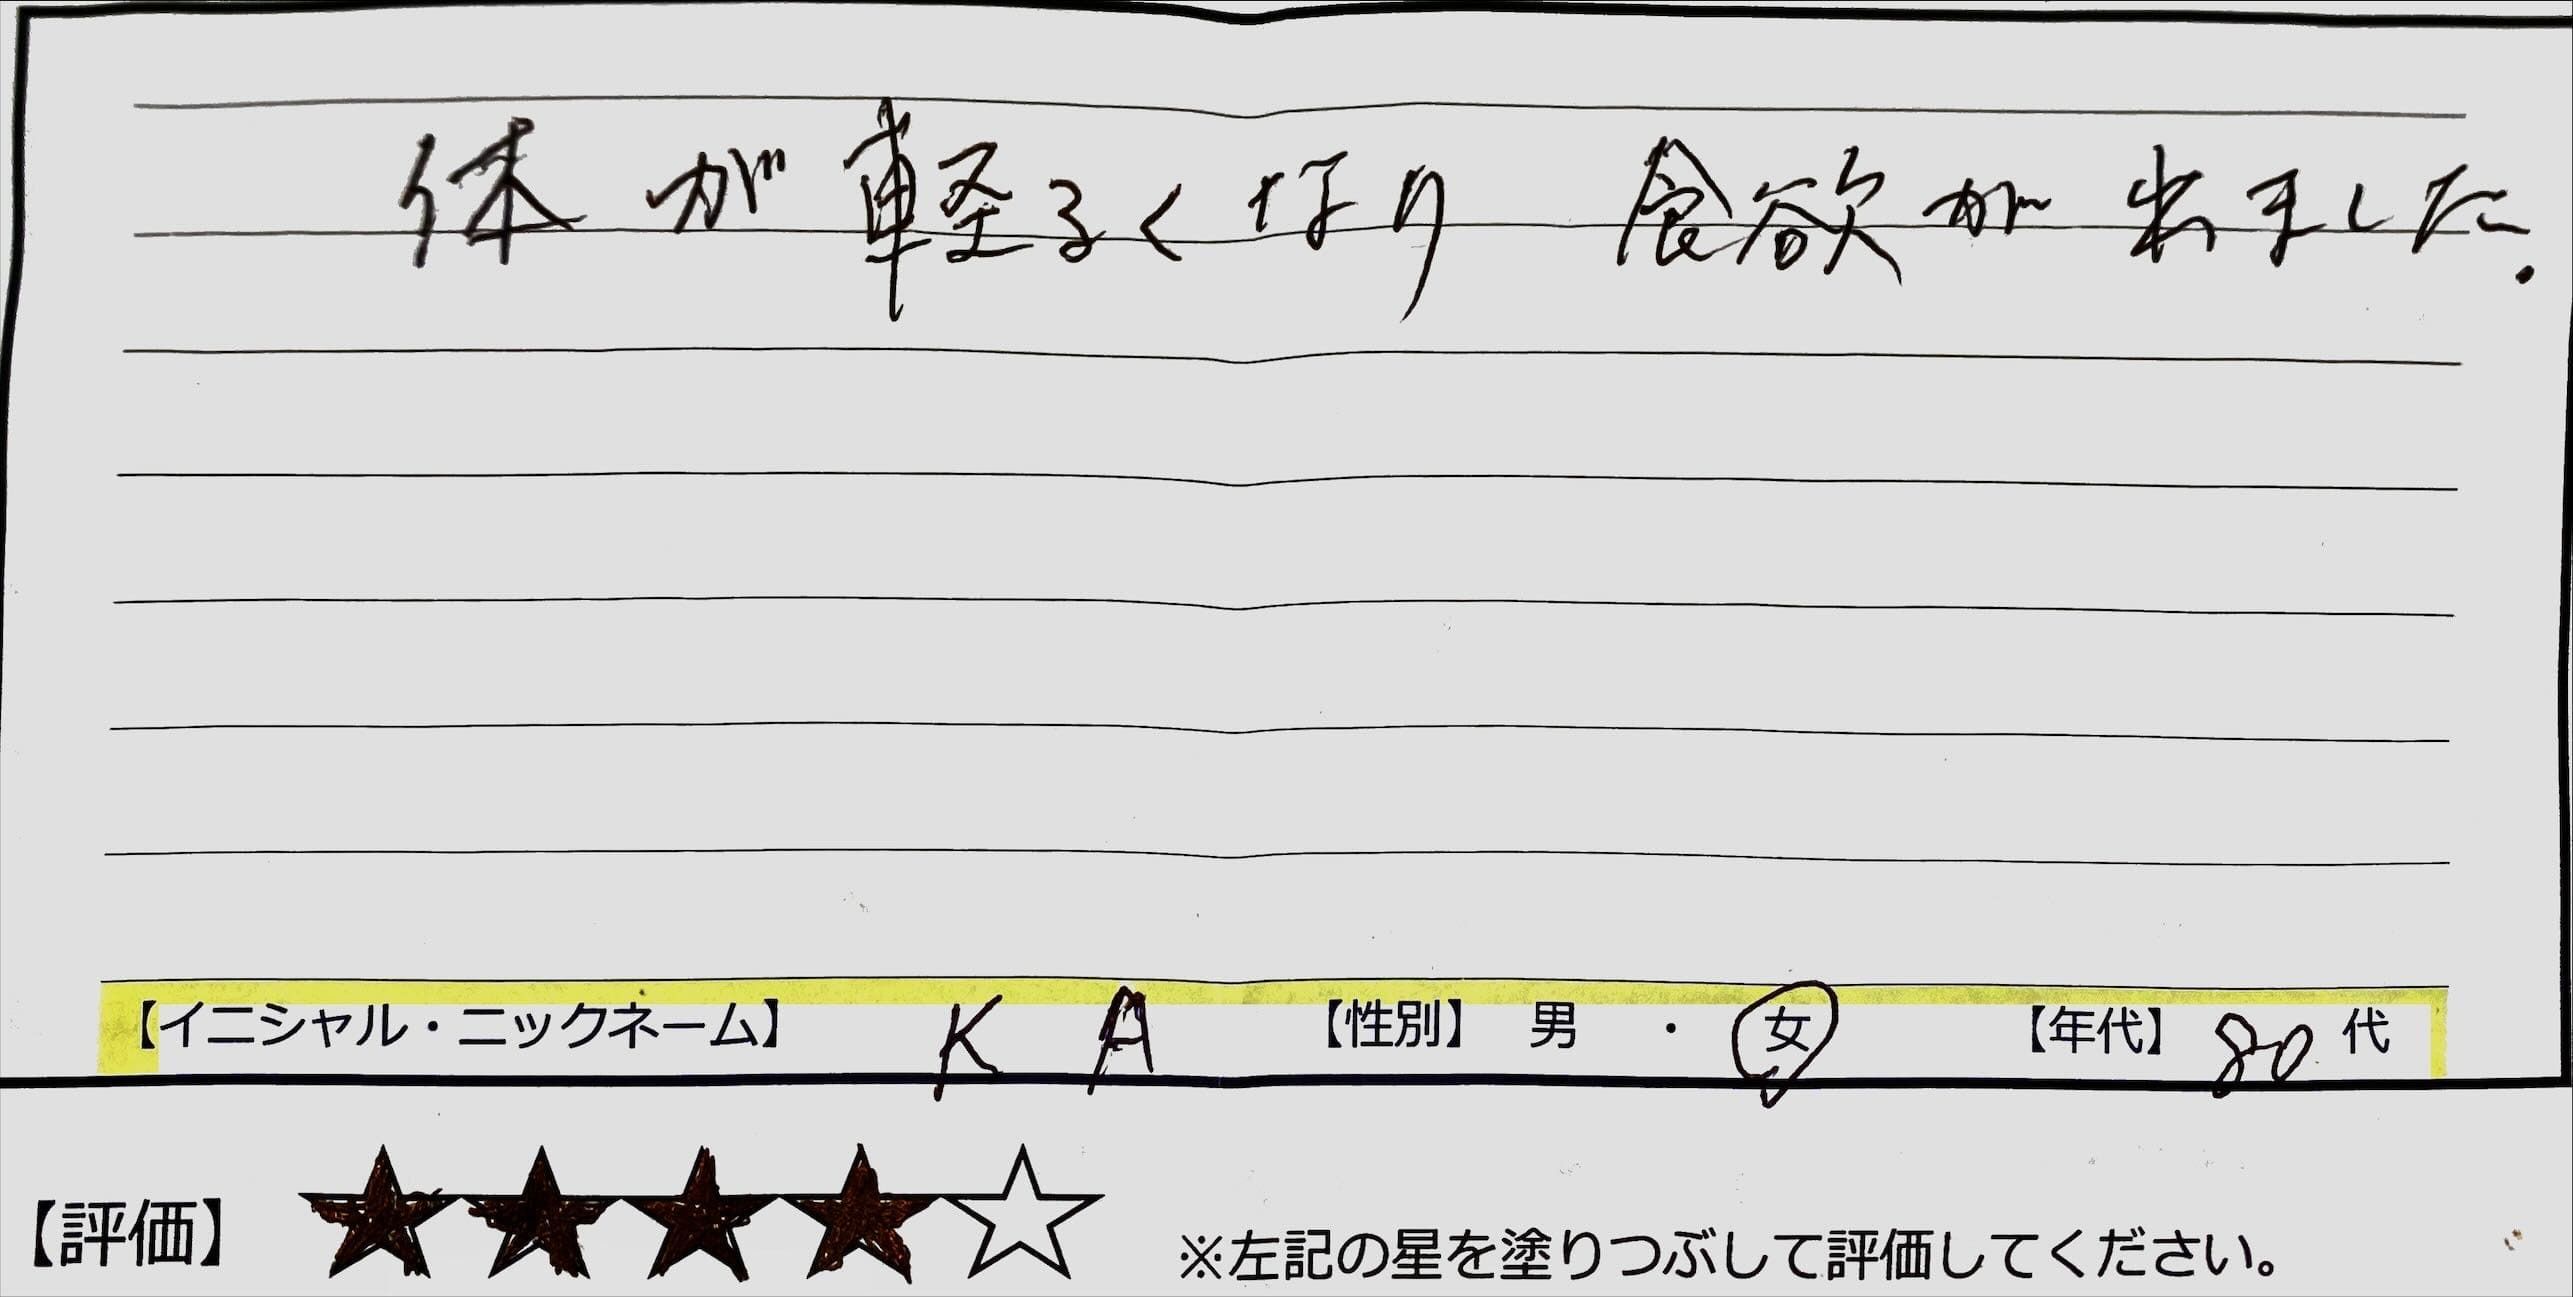 体が軽るくなり 食欲が出ました.
【イニシャル・ニックネーム】 K A 【性別】 男 ・ 女 【年代】 80 代
【評価】 ★★★★☆ ※左記の星を塗りつぶして評価してください。